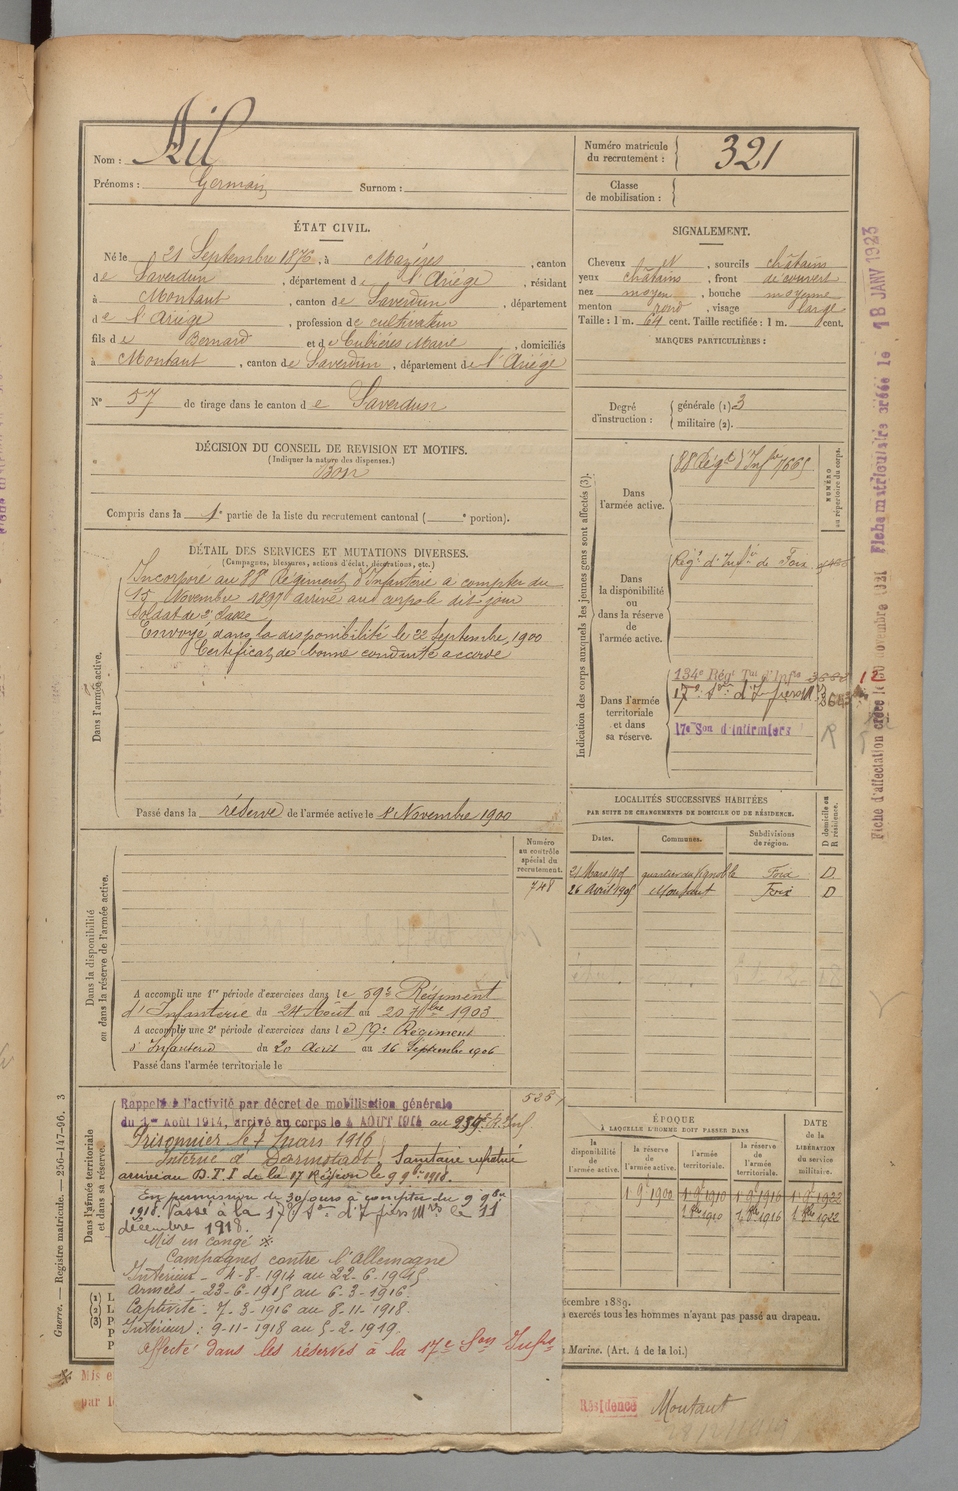 Nom : Ail
Prénoms : Germain Surnom :
Numéro matricule du recrutement : 321
Classe de mobilisation :
ÉTAT CIVIL.
Né le 21 Septembre 1876, à Mazères, canton
de Saverdun, département de l'Ariège, résidant
à Montaut, canton de Saverdun, département
de l'Ariège, profession de cultivateur
fils de Bernard et de Cubières Marie, domiciliés
à Montaut, canton de Saverdun, département de l'Ariège
N° 57 de tirage dans le canton de Saverdun
SIGNALEMENT.
Cheveux N, sourcils châtains
yeux châtains, front découvert
nez moyen, bouche moyenne
menton rond, visage large
Taille : 1 m. 64 cent. Taille rectifiée : 1 m. cent.
MARQUES PARTICULIÈRES :
Degré d'instruction : générale (1) 3
militaire (2).
DÉCISION DU CONSEIL DE REVISION ET MOTIFS.
(Indiquer la nature des dispenses.)
Bon
Compris dans la 1e partie de la liste du recrutement cantonal ( e portion).
DÉTAIL DES SERVICES ET MUTATIONS DIVERSES.
(Campagnes, blessures, actions d'éclat, décorations, etc.)
Dans l'armée active.
Incorporé au 88e Régiment d'Infanterie à compter du
15 Novembre 1897 arrivé au corps le dit jour
Soldat de 2e classe
Envoyé dans la disponibilité le 22 Septembre 1900
Certificat de bonne conduite accordé
Passé dans la réserve de l'armée active le 1r Novembre 1900
Indication des corps auxquels les jeunes gens sont affectés (3).
NUMÉRO au répertoire du corps.
Dans l'armée active.
88 Régt d'Infie 7665
Dans la disponibilité ou dans la réserve de l'armée active.
Régt d'Infie de Foix
Dans l'armée territoriale et dans sa réserve.
134e Régt Tal d'Infie
17e Son d'Infiers Mres
17e Son d'Infirmiers R
Fiche matriculaire créée le 18 JANV 1923
Fiche d'affectation créée le
LOCALITÉS SUCCESSIVES HABITÉES
PAR SUITE DE CHANGEMENTS DE DOMICILE OU DE RÉSIDENCE.
Dates. Communes. Subdivisions de région. D domicile ou R résidence.
21 Mars 1901 quartier du Vignoble Foix D
26 Avril 1905 Montaut Foix D
Numéro au contrôle spécial du recrutement.
748
Dans la disponibilité ou dans la réserve de l'armée active.
A accompli une 1re période d'exercices dans le 59e Régiment
d'Infanterie du 24 Août au 20 7bre 1903
A accompli une 2e période d'exercices dans le 59e Régiment
d'Infanterie du 20 Août au 16 Septembre 1906
Passé dans l'armée territoriale le
Dans l'armée territoriale et dans sa réserve.
Rappelé à l'activité par décret de mobilisation générale
du 1er Août 1914, arrivé au corps le 4 AOUT 1914 au 259e Rt Inf
Prisonnier le 7 mars 1916
Interné à Darmstadt, Sanitaire rapatrié
arrivé au D.T.I de la 17 Région le 9 9bre 1918.
En permission de 30 jours à compter du 9 9bre
1918. Passé à la 17e Son d'Infiers Mres le 11
décembre 1918.
Mis en congé *
Campagnes contre l'Allemagne
Intérieur - 4-8-1914 au 22-6-1915
Armées - 23-6-1915 au 6-3-1916
Captivité - 7-3-1916 au 8-11-1918.
Intérieur : 9-11-1918 au 5-2-1919.
Affecté dans les réserves à la 17e Son Infirs
ÉPOQUE
À LAQUELLE L'HOMME DOIT PASSER DANS
la disponibilité de l'armée active. la réserve de l'armée active. l'armée territoriale. la réserve de l'armée territoriale. DATE de la LIBÉRATION du service militaire.
1 9e 1900 1 9e 1910 1 9e 1916 1 9e 1922
1 8bre 1910 1 8bre 1916 1 8bre 1922
décembre 1889.
exercés tous les hommes n'ayant pas passé au drapeau.
Marine. (Art. 4 de la loi.)
Guerre. — Registre matricule. — 256-147-96. 3
* Mis e
par
Résidence Montaut